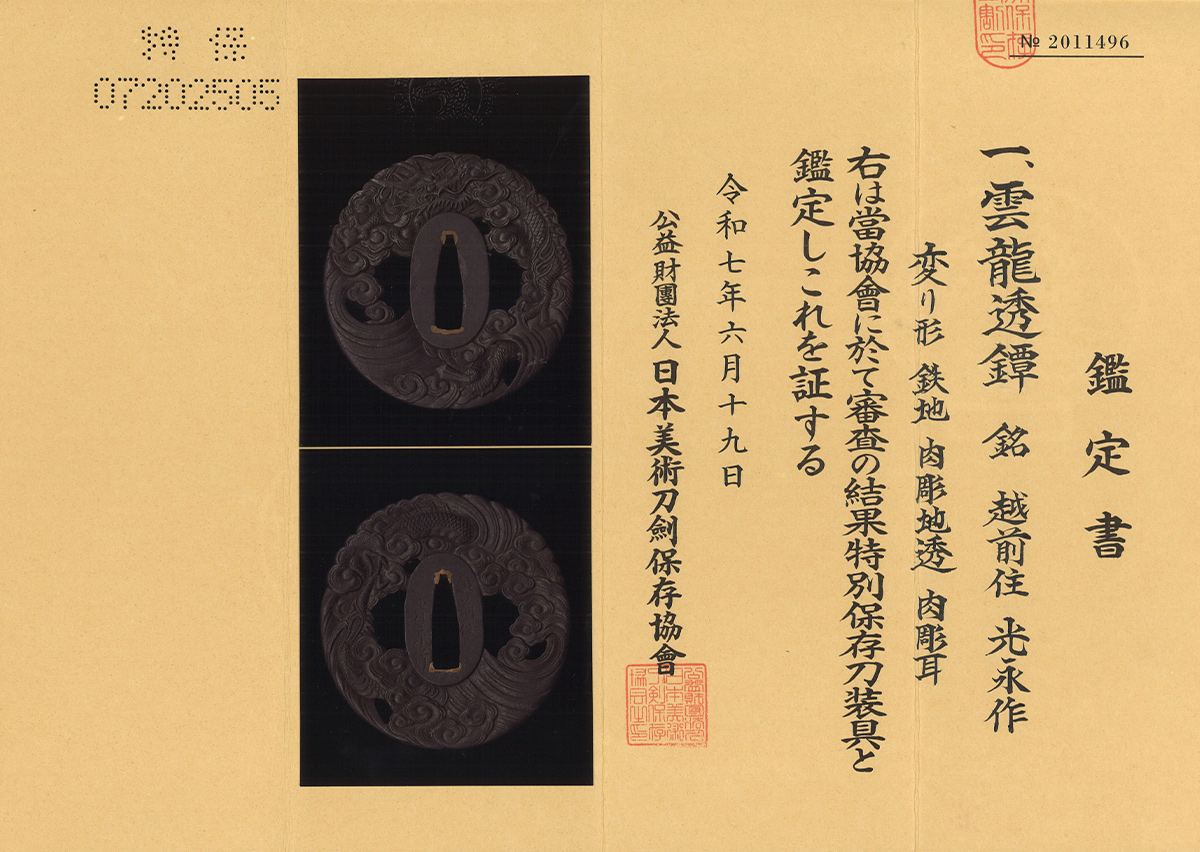 № 2011496
鑑定書
一、雲龍透鐔 銘 越前住 光永作
変り形 鉄地 肉彫地透 肉彫耳
右は當協會に於て審査の結果特別保存刀装具と
鑑定しこれを証する
令和七年六月十九日
公益財團法人 日本美術刀劍保存協會
特 保
07202505